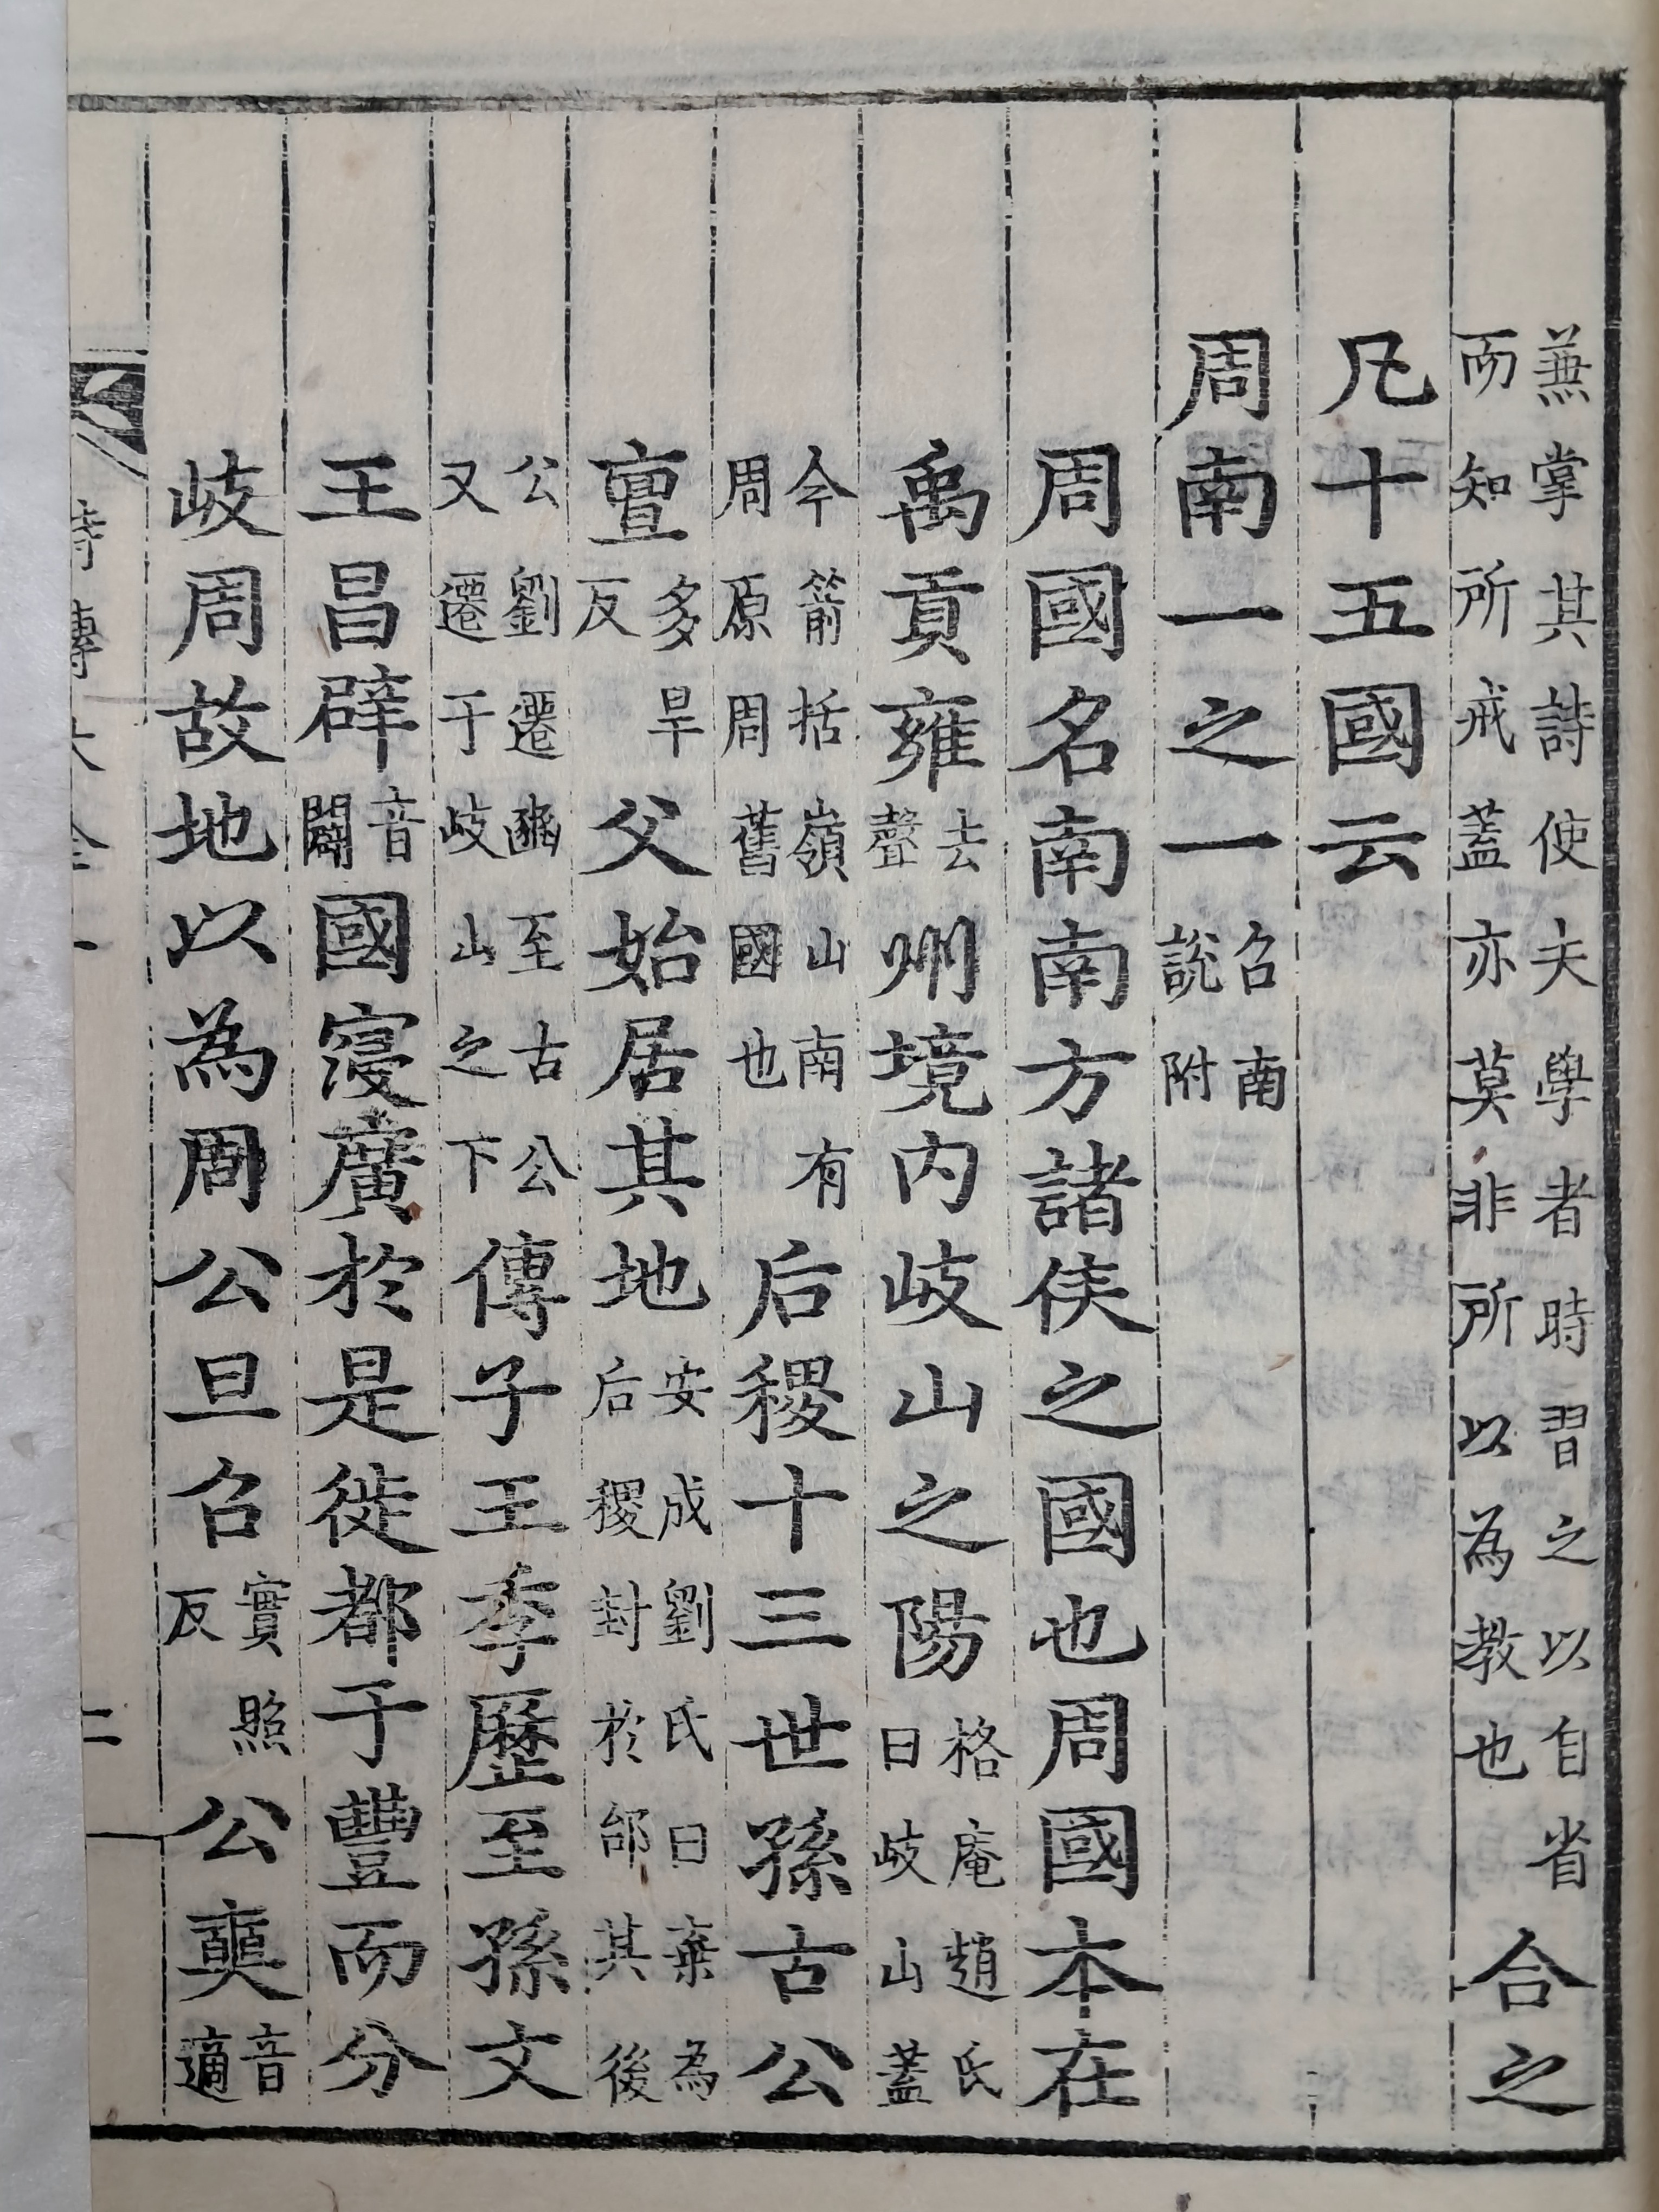 兼掌其詩使夫學者時習之以自省而知所戒蓋亦莫非所以為教也合之
凡十五國云
周南一之一召南說附
周國名南南方諸侯之國也周國本在
禹貢雍去聲州境内岐山之陽格庵趙氏曰岐山蓋
今箭括嶺山南有周原周舊國也后稷十三世孫古公
亶多旱反父始居其地安成劉氏曰棄為后稷封於邰其後
公劉遷豳至古公又遷于岐山之下傳子王季歷至孫文
王昌辟音闢國寖廣於是徙都于豐而分
岐周故地以為周公旦召實照反公奭音適